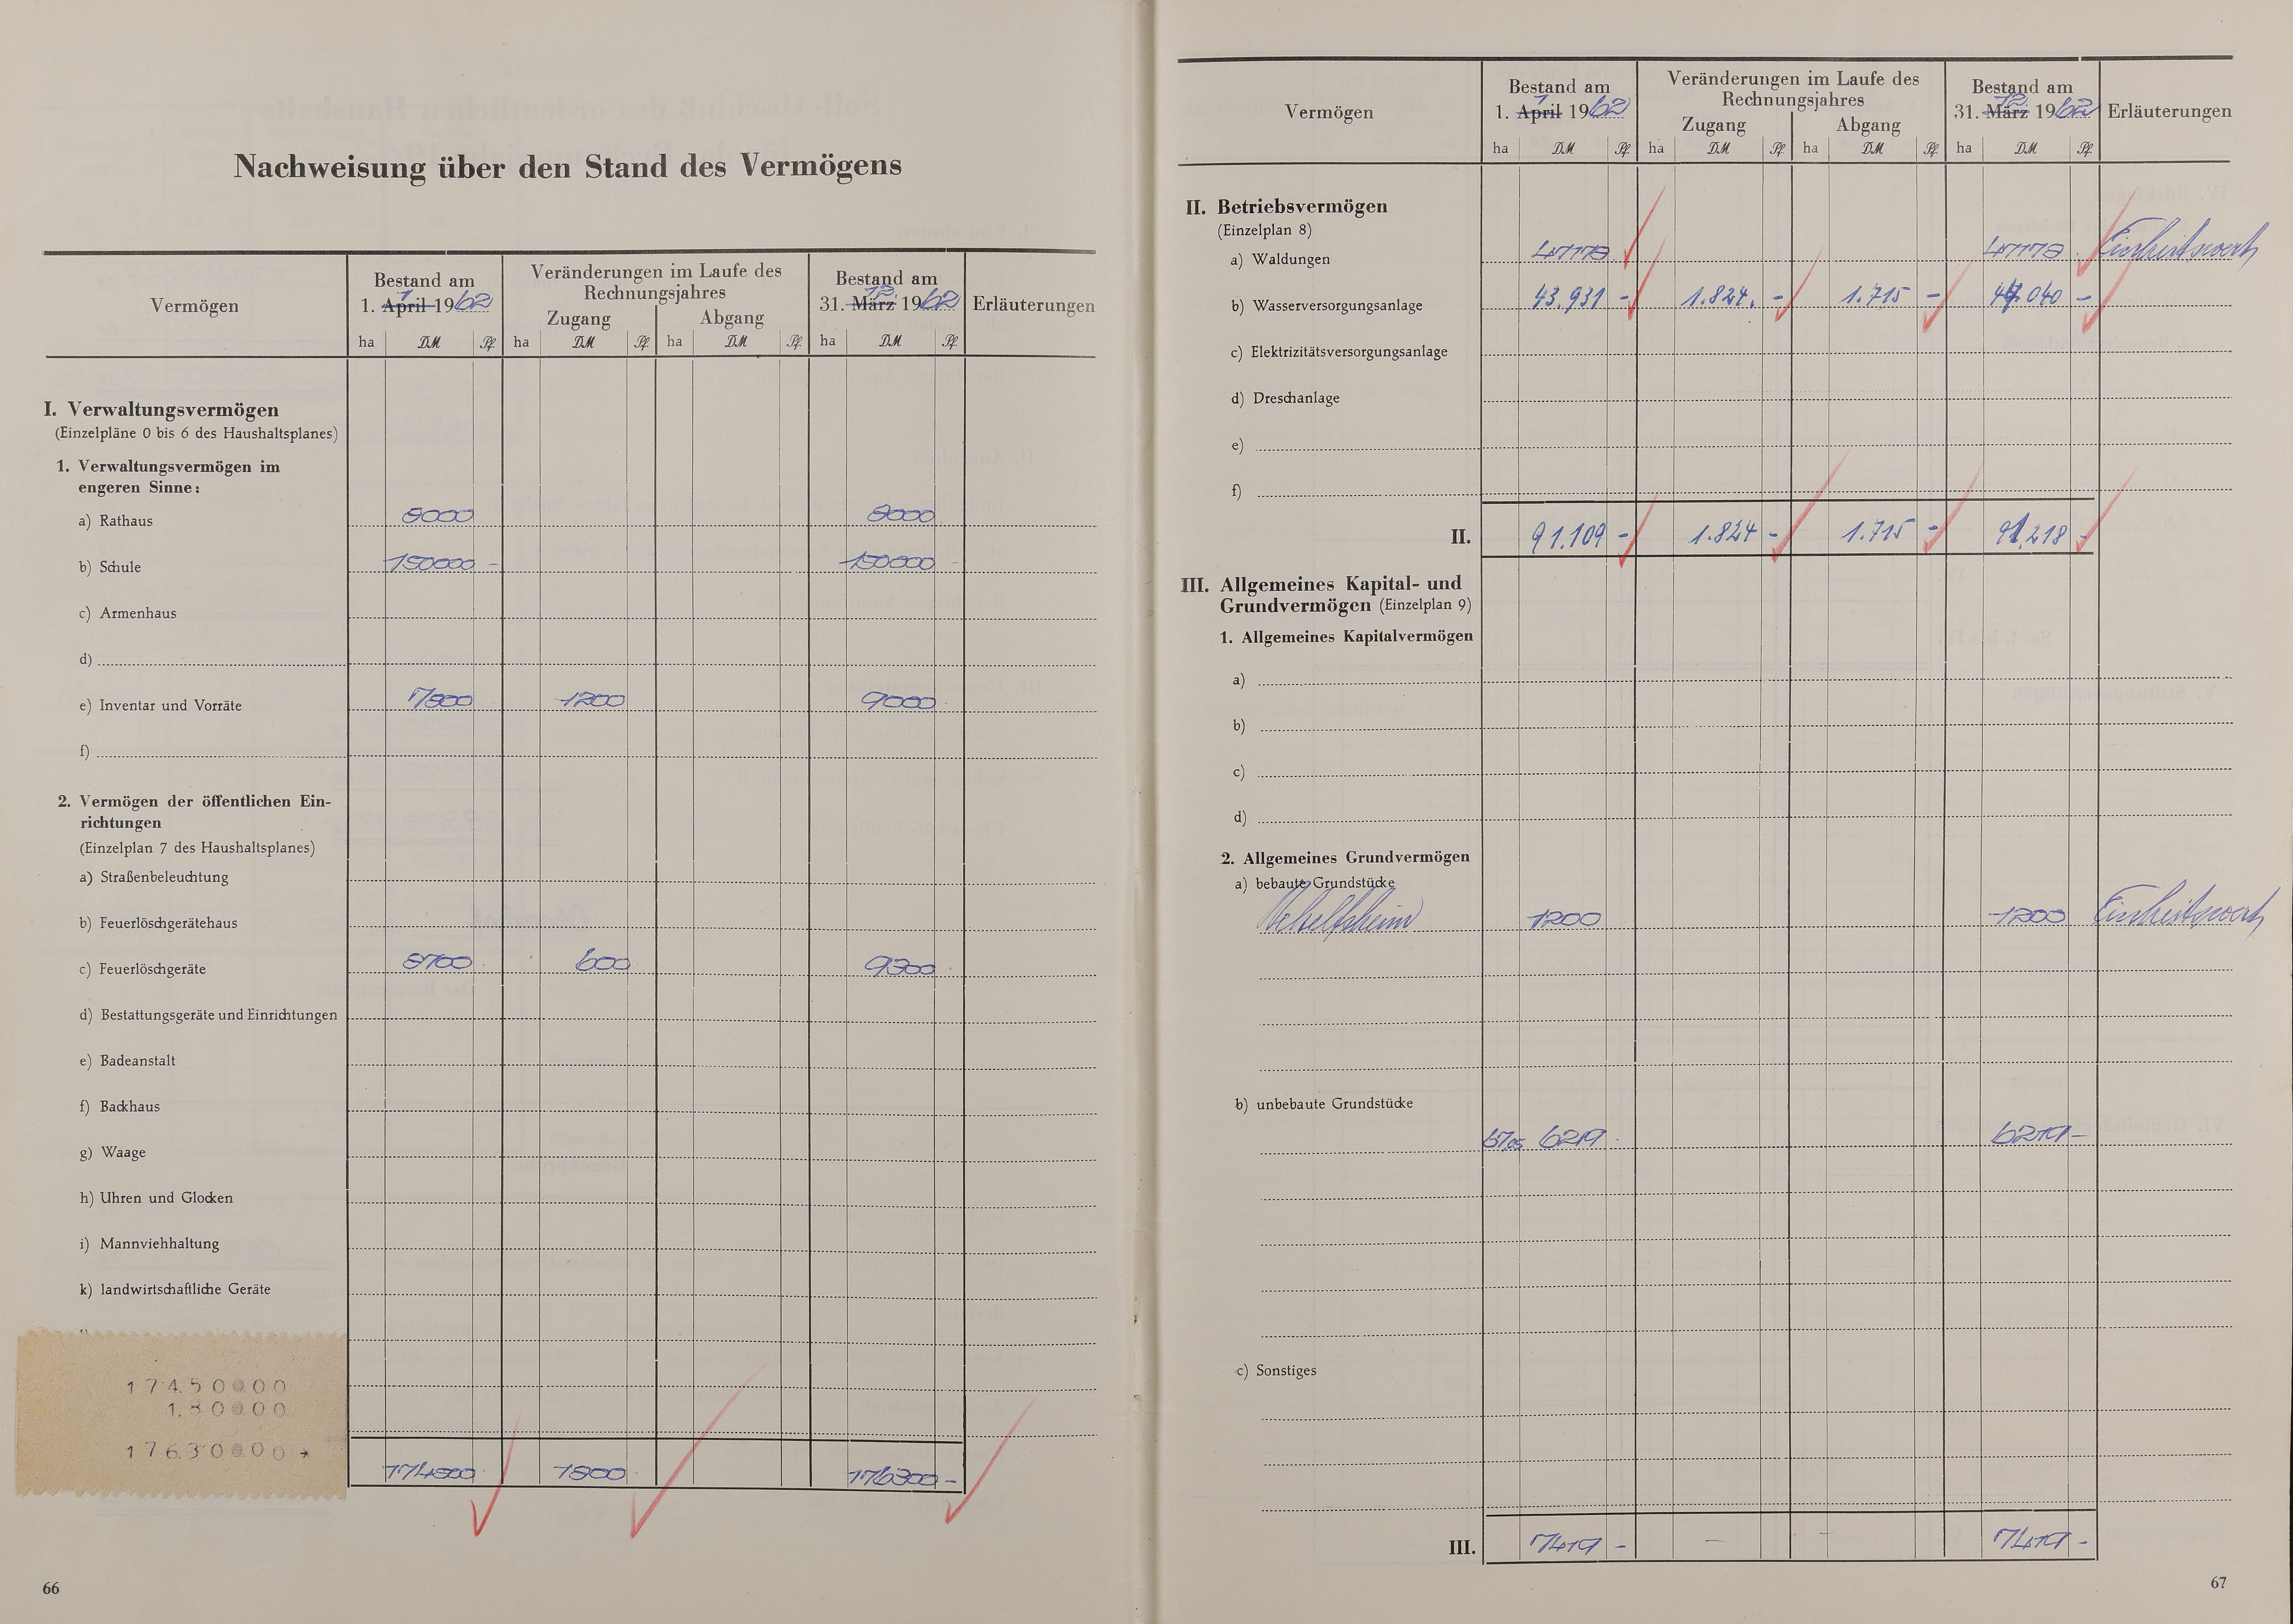 Nachweisung über den Stand des Vermögens
Vermögen
Bestand am
1. April 1 1962
Veränderungen im Laufe des
Rechnungsjahres
Zugang
Abgang
Bestand am
31. März 12 1962
Erläuterungen
ha DM Pf. ha DM Pf ha DM Pf. ha DM Pf.
I. Verwaltungsvermögen
(Einzelpläne 0 bis 6 des Haushaltsplanes)
1. Verwaltungsvermögen im
engeren Sinne:
a) Rathaus 8000 8000
b) Schule 150000 - 150000 -
c) Armenhaus
d)
e) Inventar und Vorräte 7800 1200 9000
f)
2. Vermögen der öffentlichen Ein-
richtungen
(Einzelplan 7 des Haushaltsplanes)
a) Straßenbeleuchtung
b) Feuerlöschgerätehaus
c) Feuerlöschgeräte 8700 600 9300
d) Bestattungsgeräte und Einrichtungen
e) Badeanstalt
f) Backhaus
g) Waage
h) Uhren und Glocken
i) Mannviehhaltung
k) landwirtschaftliche Geräte
174.500.00
1.800.00
176.300.00
174500 1800 176300 -
66
Vermögen
Bestand am
1. April 1 1962
Veränderungen im Laufe des
Rechnungsjahres
Zugang
Abgang
Bestand am
31. März 12 1962
Erläuterungen
ha DM Pf. ha DM Pf ha DM Pf. ha DM Pf.
II. Betriebsvermögen
(Einzelplan 8)
a) Waldungen 47178 47178 Einheitswert
b) Wasserversorgungsanlage 43.931 - 1.824. - 1.715 - 44.040 -
c) Elektrizitätsversorgungsanlage
d) Dreschanlage
e)
f)
II. 91.109 - 1.824 - 1.715 - 91.218 -
III. Allgemeines Kapital- und
Grundvermögen (Einzelplan 9)
1. Allgemeines Kapitalvermögen
a)
b)
c)
d)
2. Allgemeines Grundvermögen
a) bebaute Grundstücke
1200 1200 Einheitswert
b) unbebaute Grundstücke
6219 6219 -
c) Sonstiges
III. 7419 - - - 7419 -
67